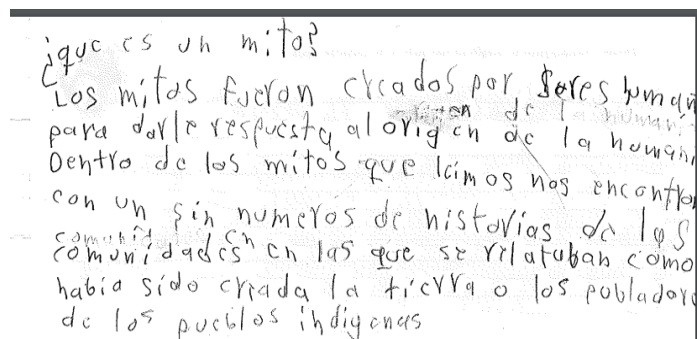 ¿que es un mito?
Los mitos fueron creados por seres human
para darle respuesta al origen de la human
Dentro de los mitos que leimos nos encontra
con un sin numeros de historias de los
comunidades en las que se relataban como
habia sido creada la tierra o los pobladore
de los pueblos indigenas